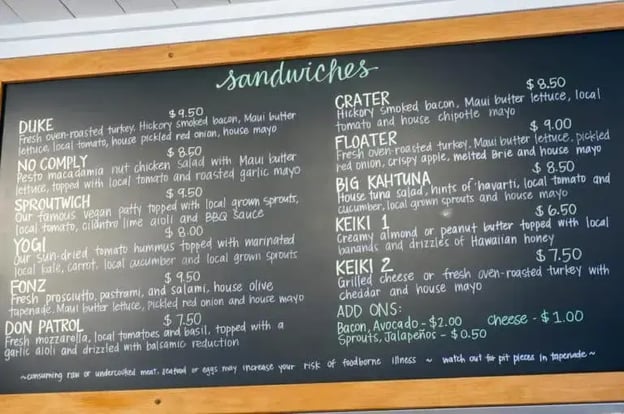 sandwiches
DUKE $9.50
Fresh oven-roasted turkey, Hickory smoked bacon, Maui butter
lettuce, local tomato, house pickled red onion, house mayo
NO COMPLY $8.50
Pesto macadamia nut chicken salad with Maui butter
lettuce, topped with local tomato and roasted garlic mayo
SPROUTWICH $9.50
Our famous vegan patty topped with local grown sprouts,
local tomato, cilantro lime aioli and BBQ sauce
YOGI $8.00
Our sun-dried tomato hummus topped with marinated
local kale, carrot, local cucumber and local grown sprouts
FONZ $9.50
Fresh prosciutto, pastrami, and salami, house olive
tapenade, Maui butter lettuce, pickled red onion and house mayo
DON PATROL $7.50
Fresh mozzarella, local tomatoes and basil, topped with a
garlic aioli and drizzled with balsamic reduction
CRATER $8.50
Hickory smoked bacon, Maui butter lettuce, local
tomato and house chipotle mayo
FLOATER $9.00
Fresh oven-roasted turkey, Maui butter lettuce, pickled
red onion, crispy apple, melted Brie and house mayo
BIG KAHTUNA $8.50
House tuna salad, hints of havarti, local tomato and
cucumber, local grown sprouts and house mayo
KEIKI 1 $6.50
Creamy almond or peanut butter topped with local
banands and drizzles of Hawaiian honey
KEIKI 2 $7.50
Grilled cheese or fresh oven-roasted turkey with
cheddar and house mayo
ADD ONS:
Bacon, Avocado - $2.00 cheese - $1.00
Sprouts, Jalapeños - $0.50
~consuming raw or undercooked meat, seafood or eggs may increase your risk of foodborne illness ~ watch out for pit pieces in tapenade~